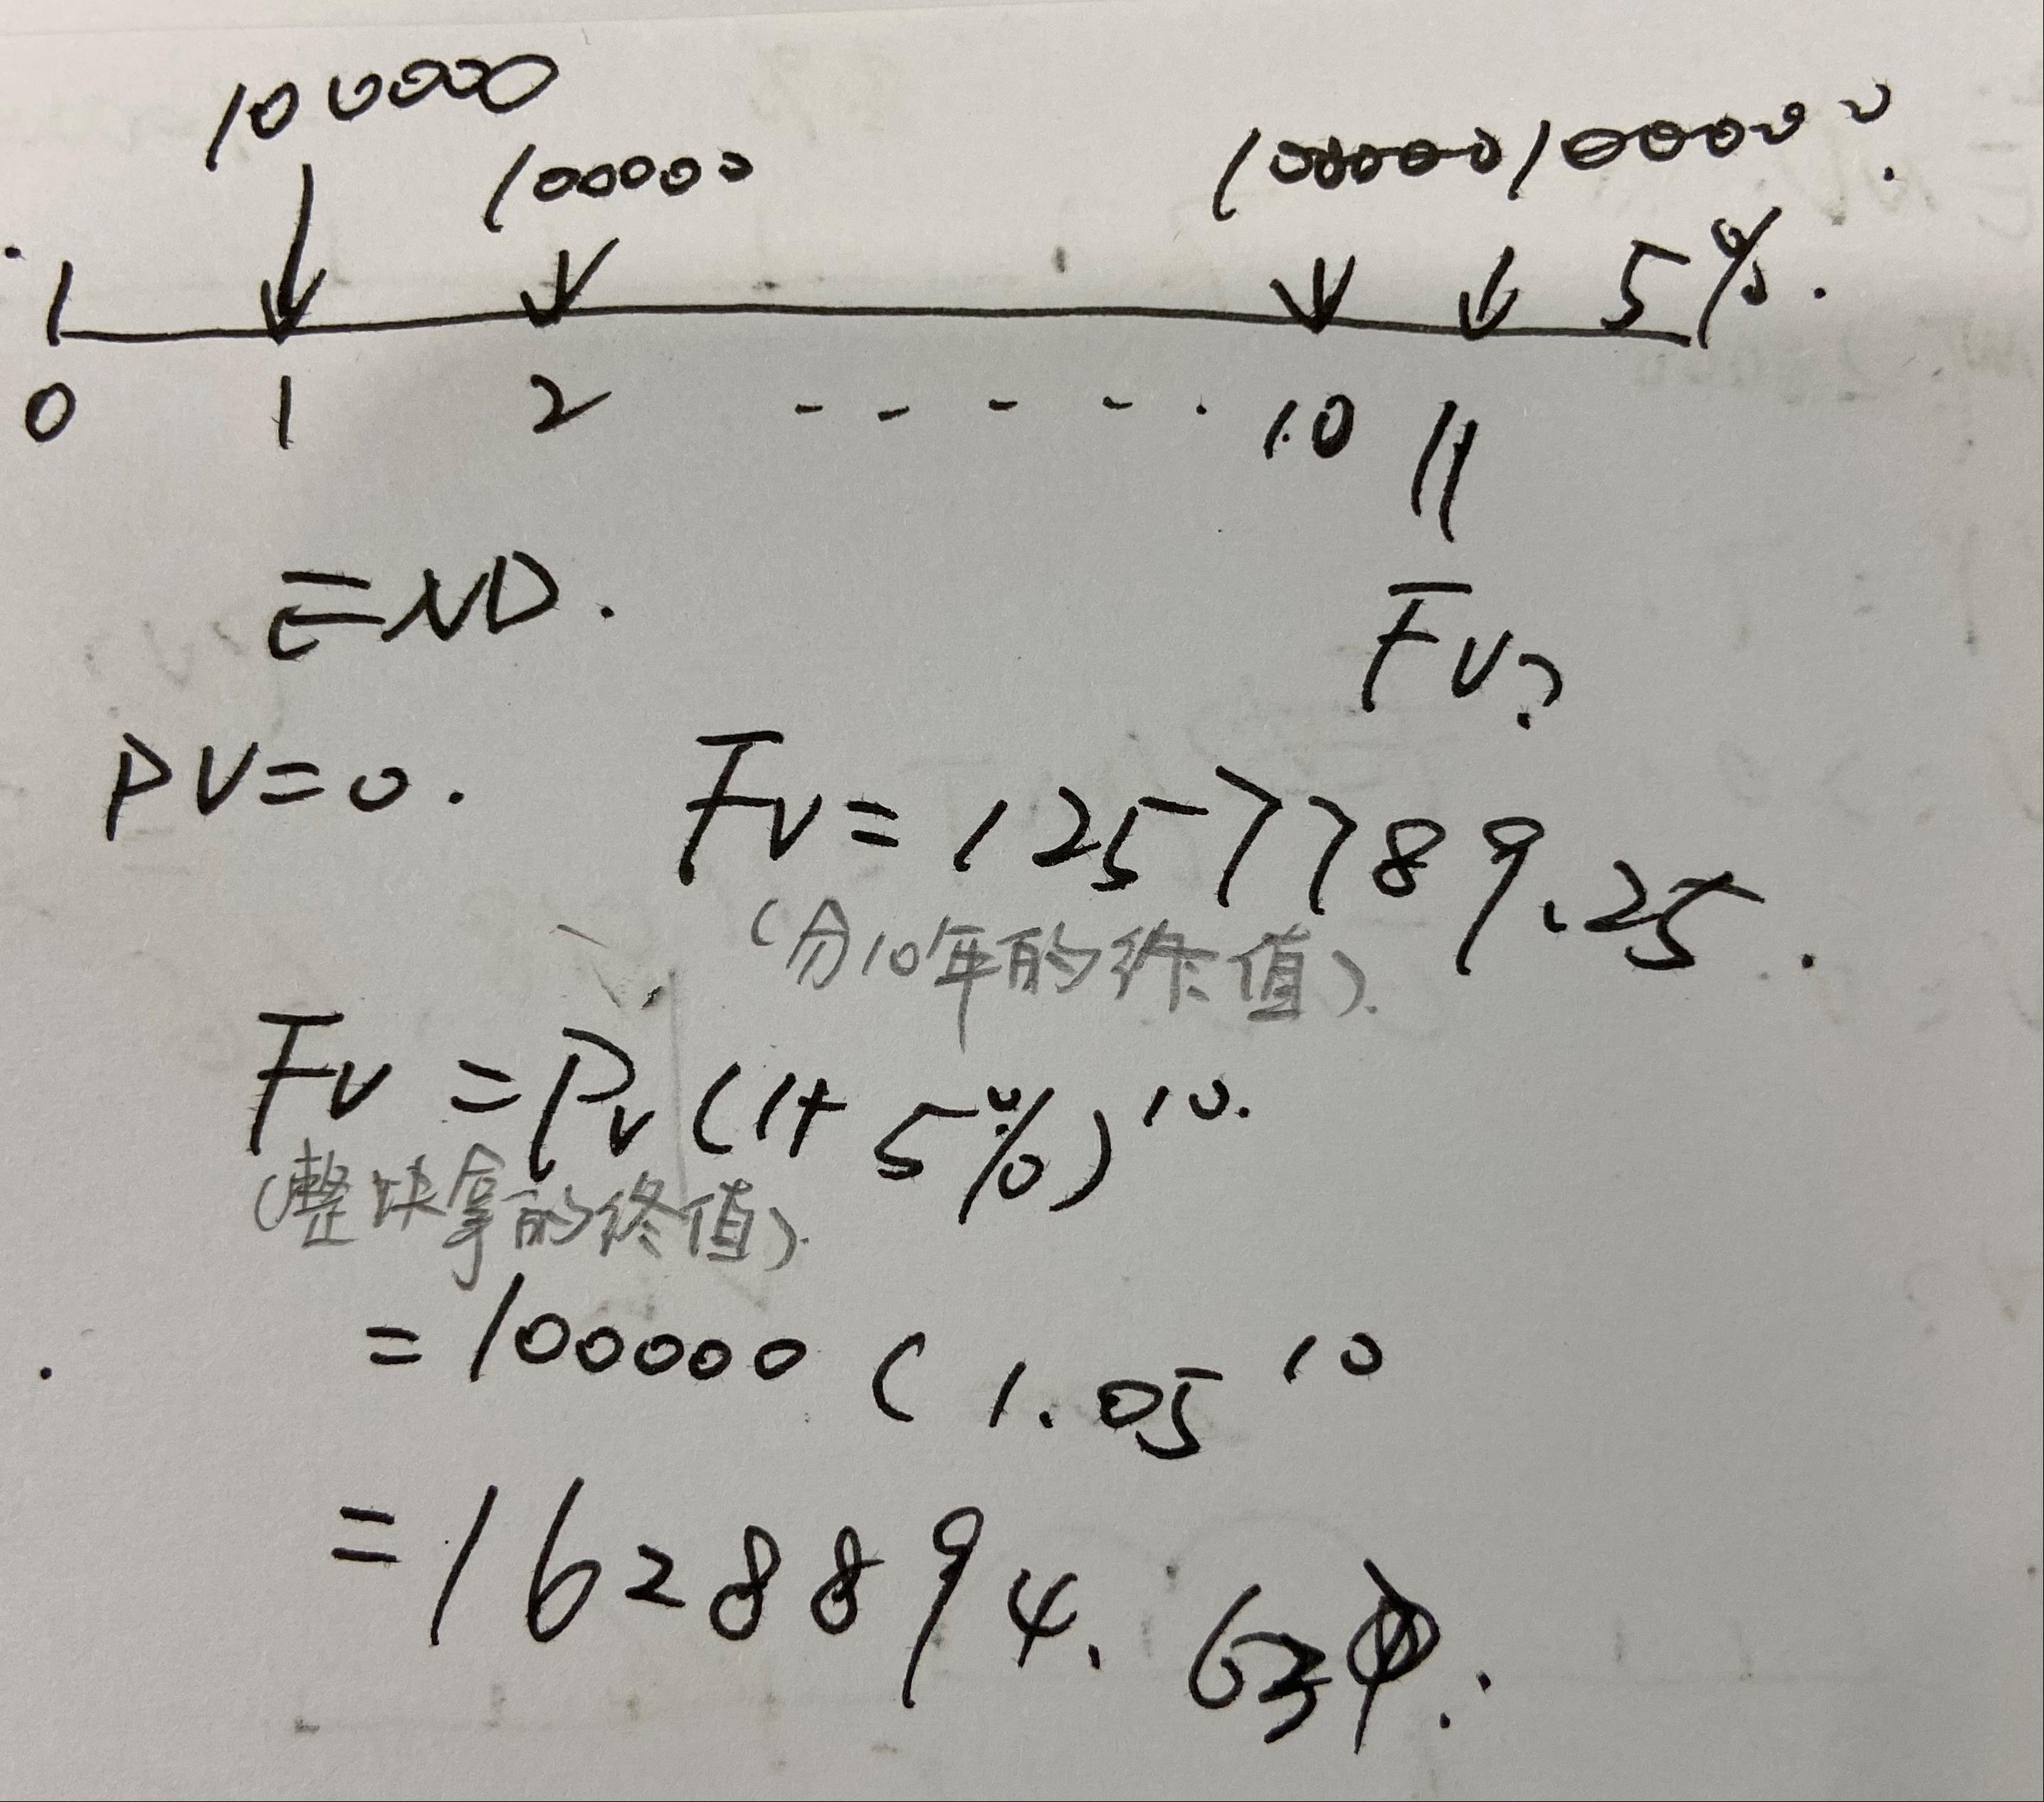 100000
100000
100000 100000.
5%.
0 1 2 ----- 10 11
END.
FV?
PV=0. FV=1257789.25.
(分10年的终值).
FV = PV (1+5%)10.
(整块拿的终值).
= 100000 (1.05 10
= 1628894.63